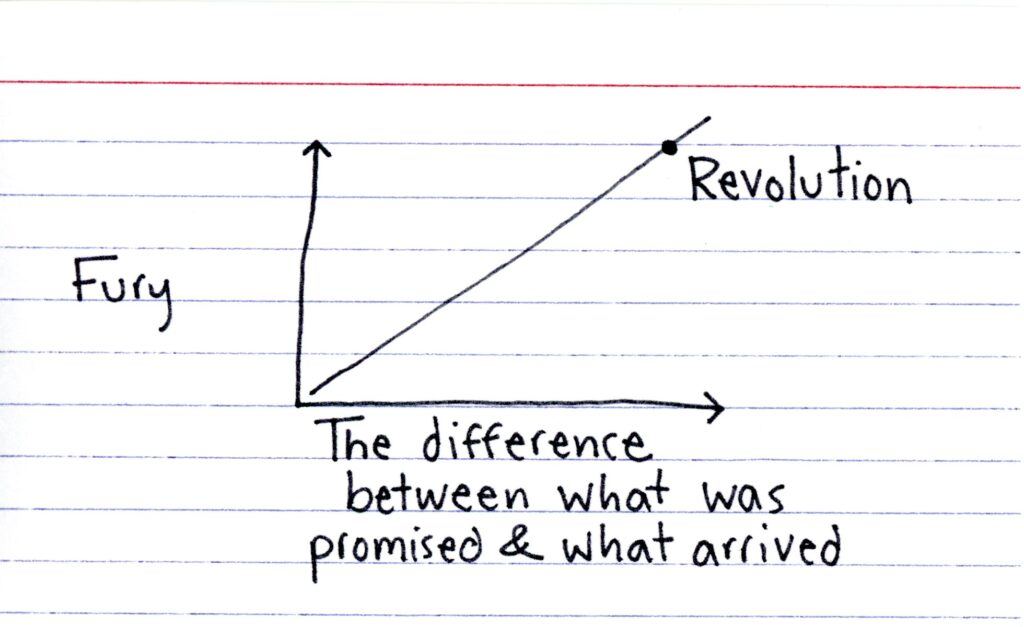 Revolution
Fury
The difference
between what was
promised & what arrived